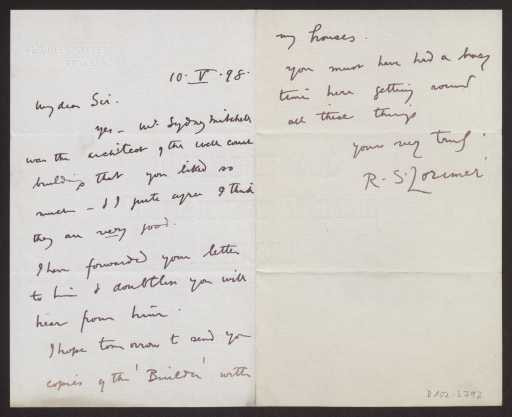 10. V. 98.
My dear Sir.
Yes – Mr. Sydney Mitchell
was the architect of the well court
buildings that you liked so
much – & I quite agree I think
they are very good.
I have forwarded your letter
to him & doubtless you will
hear from him.
I hope tomorrow to send you
copies of the 'Builder' with
my houses.
You must have had a busy
time here getting round
all these things
yours very truly
R. S. Lorimer